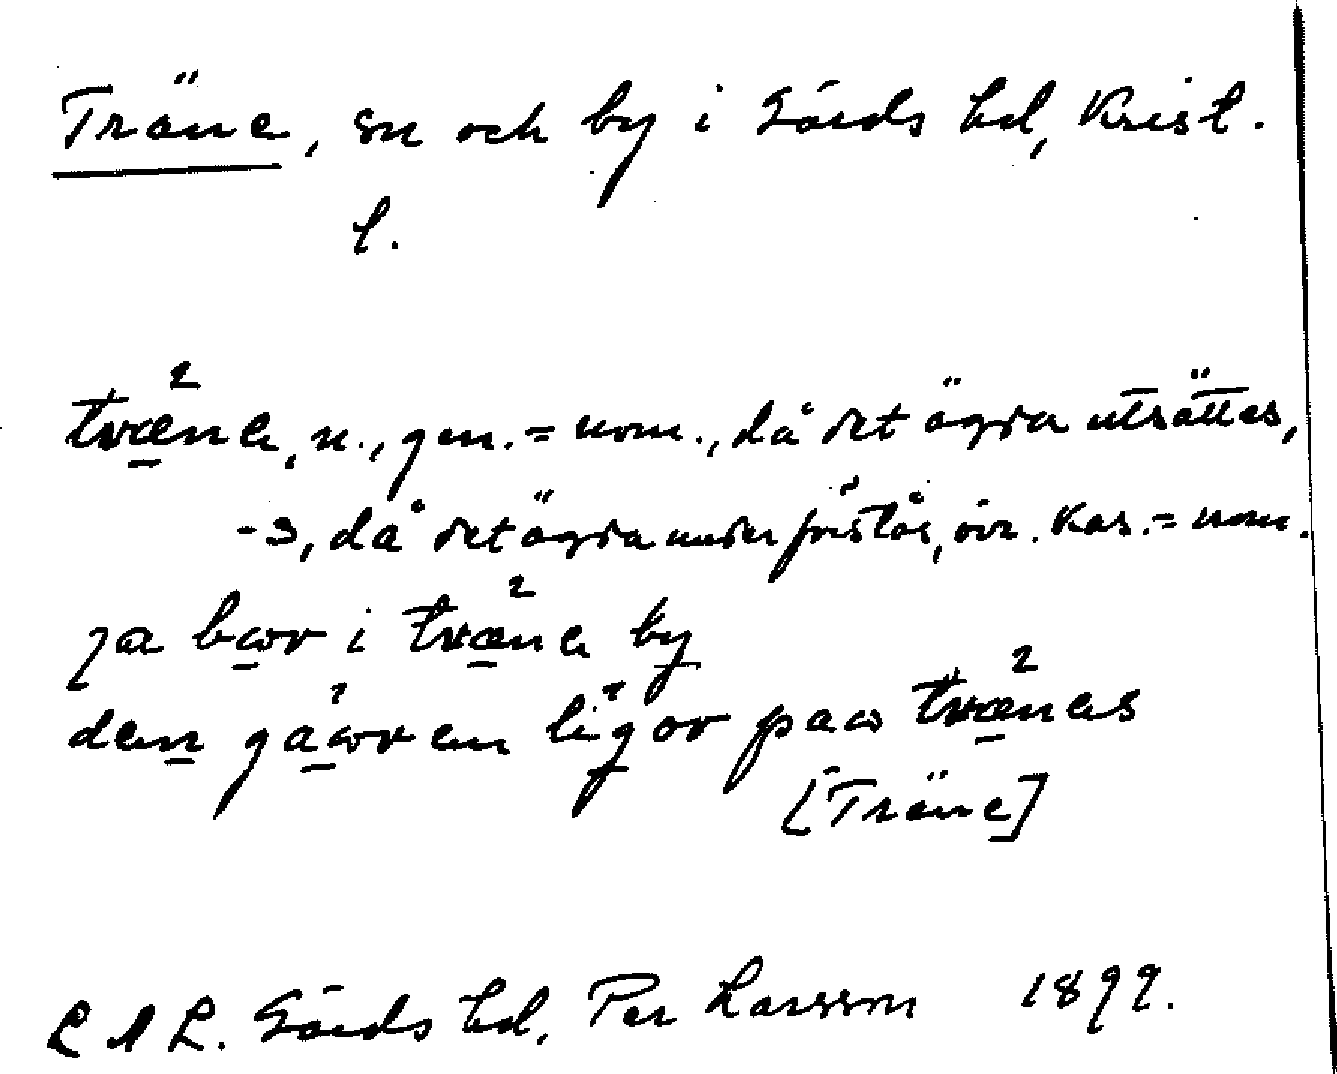 Träne, sn och by i Gärds hd, Krist.
l.
træ̱²ne, n., gen. = nom., då det ägda utsättes,
-s, då det ägda underförstås, övr. kas. = nom.
ja bo̱r i træ̱²ne by
den gå̱ren ligor på træ̱²nes
[Träne]
LAL. Gärds hd, Per Larsson 1899.